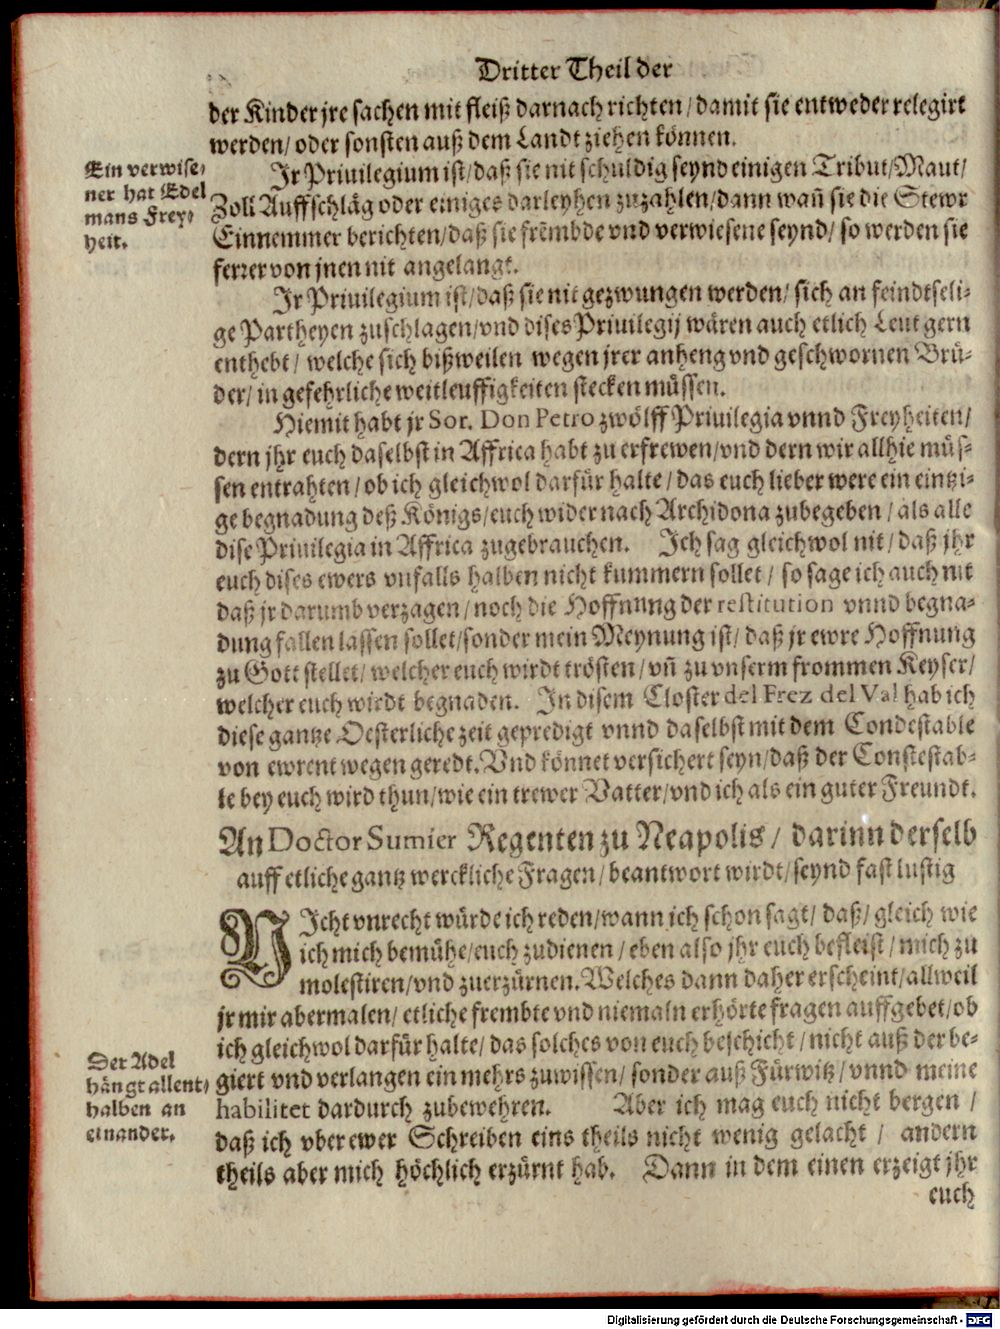 Dritter Theil der
der Kinder jre sachen mit fleiß darnach richten / damit sie entweder relegirt
werden / oder sonsten auß dem Landt ziehen können.
Ein verwise-
ner hat Edel
mans Frey-
heit.
Jr Priuilegium ist / daß sie nit schuldig seynd einigen Tribut / Maut /
Zoll Auffschläg oder einiges darleyhen zuzahlen / dann wañ sie die Stewr
Einnemmer berichten / daß sie frẽmbde vnd verwiesene seynd / so werden sie
ferrer von jnen nit angelangt.
Jr Priuilegium ist / daß sie nit gezwungen werden / sich an feindtseli-
ge Partheyen zuschlagen / vnd dises Priuilegij wären auch etlich Leut gern
enthebt / welche sich bißweilen wegen jrer anheng vnd geschwornen Brü-
der / in gefehrliche weitleuffigkeiten stecken müssen.
Hiemit habt jr Sor. Don Petro zwölff Priuilegia vnnd Freyheiten /
dern jhr euch daselbst in Affrica habt zu erfrewen / vnd dern wir allhie müs-
sen entrahten / ob ich gleichwol darfür halte / das euch lieber were ein eintzi-
ge begnadung deß Königs / euch wider nach Archidona zubegeben / als alle
dise Priuilegia in Affrica zugebrauchen. Jch sag gleichwol nit / daß jhr
euch dises ewers vnfalls halben nicht kummern sollet / so sage ich auch nit
daß jr darumb verzagen / noch die Hoffnung der restitution vnnd begna-
dung fallen lassen sollet / sonder mein Meynung ist / daß jr ewre Hoffnung
zu Gott stellet / welcher euch wirdt trösten / vñ zu vnserm frommen Keyser /
welcher euch wirdt begnaden. In disem Closter del Frez del Val hab ich
diese gantze Oesterliche zeit gepredigt vnnd daselbst mit dem Condestable
von ewrent wegen geredt. Vnd könnet versichert seyn / daß der Constestab-
le bey euch wird thun / wie ein trewer Vatter / vnd ich als ein guter Freundt.
An Doctor Sumier Regenten zu Neapolis / darinn derselb
auff etliche gantz werckliche Fragen / beantwort wirdt / seynd fast lustig
NJcht vnrecht würde ich reden / wann ich schon sagt / daß / gleich wie
ich mich bemühe / euch zudienen / eben also jhr euch befleist / mich zu
molestiren / vnd zuerzürnen. Welches dann daher erscheint / allweil
jr mir abermalen / etliche frembte vnd niemaln erhörte fragen auffgebet / ob
ich gleichwol darfür halte / das solches von euch beschicht / nicht auß der be-
Der Adel
hängt allent-
halben an
einander.
giert vnd verlangen ein mehrs zuwissen / sonder auß Fürwitz / vnnd meine
habilitet dardurch zubewehren. Aber ich mag euch nicht bergen /
daß ich vber ewer Schreiben eins theils nicht wenig gelacht / andern
theils aber mich höchlich erzürnt hab. Dann in dem einen erzeigt jhr
euch
Digitalisierung gefördert durch die Deutsche Forschungsgemeinschaft - DFG